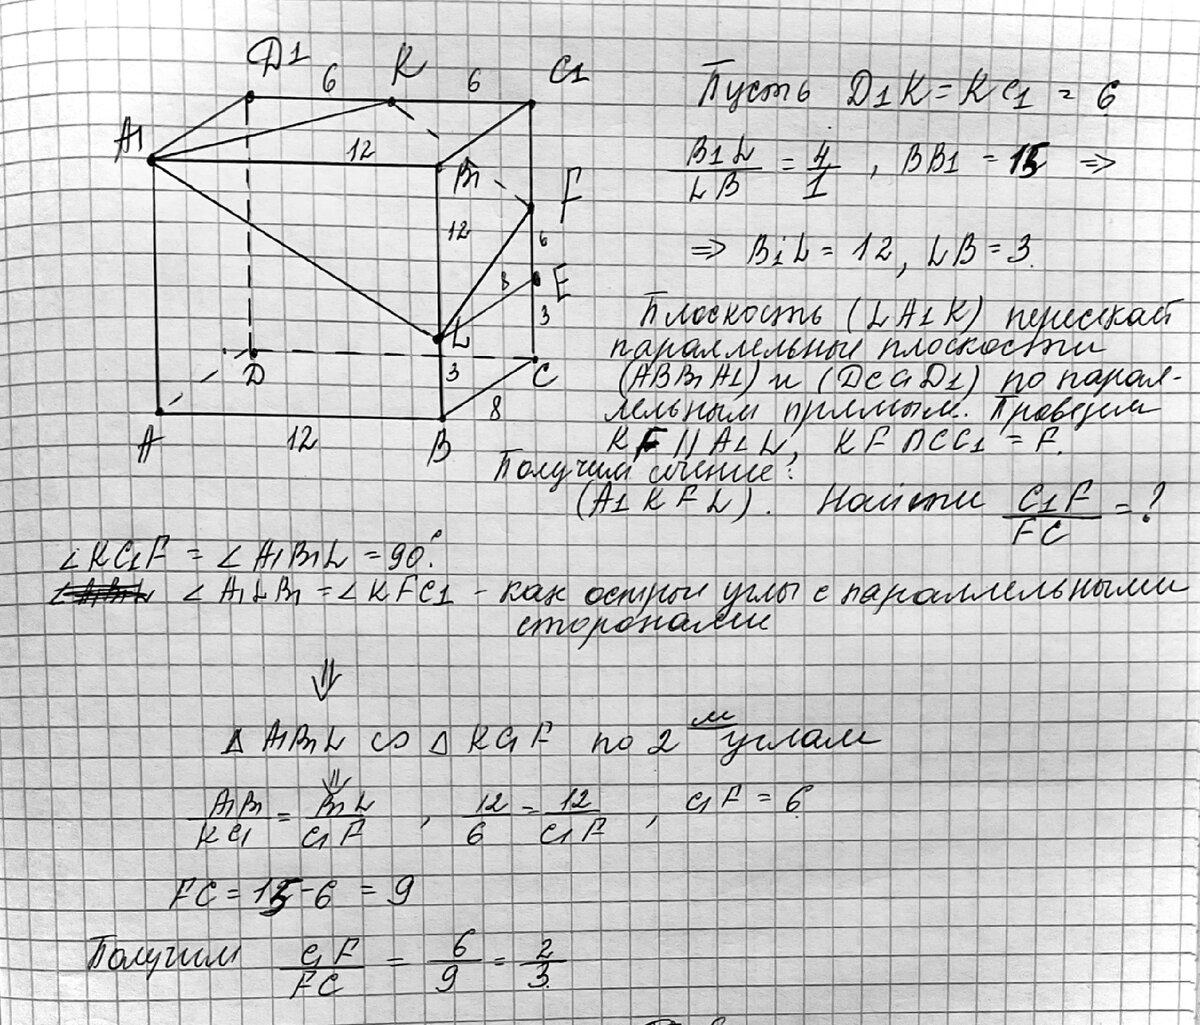 D1 6 K 6 C1
A1 12 B1 F
12 6
8 E
L 3
D 3 C
8
A 12 B
Пусть D1K = KC1 = 6
B1L/LB = 4/1, BB1 = 15 =>
=> B1L = 12, LB = 3.
Плоскость (LA1K) пересекает
параллельные плоскости
(ABB1A1) и (DCC1D1) по парал-
лельным прямым. Проведем
KF || A1L, KF ∩ CC1 = F.
Получим сечение:
(A1KFL). Найти C1F/FC = ?
∠KC1F = ∠A1B1L = 90°.
∠A1LB1 = ∠KFC1 - как острые углы с параллельными
сторонами
⇓
Δ A1B1L ∽ Δ KC1F по 2м углам
⇓
A1B1/KC1 = B1L/C1F, 12/6 = 12/C1F, C1F = 6
FC = 15 - 6 = 9
Получим C1F/FC = 6/9 = 2/3.